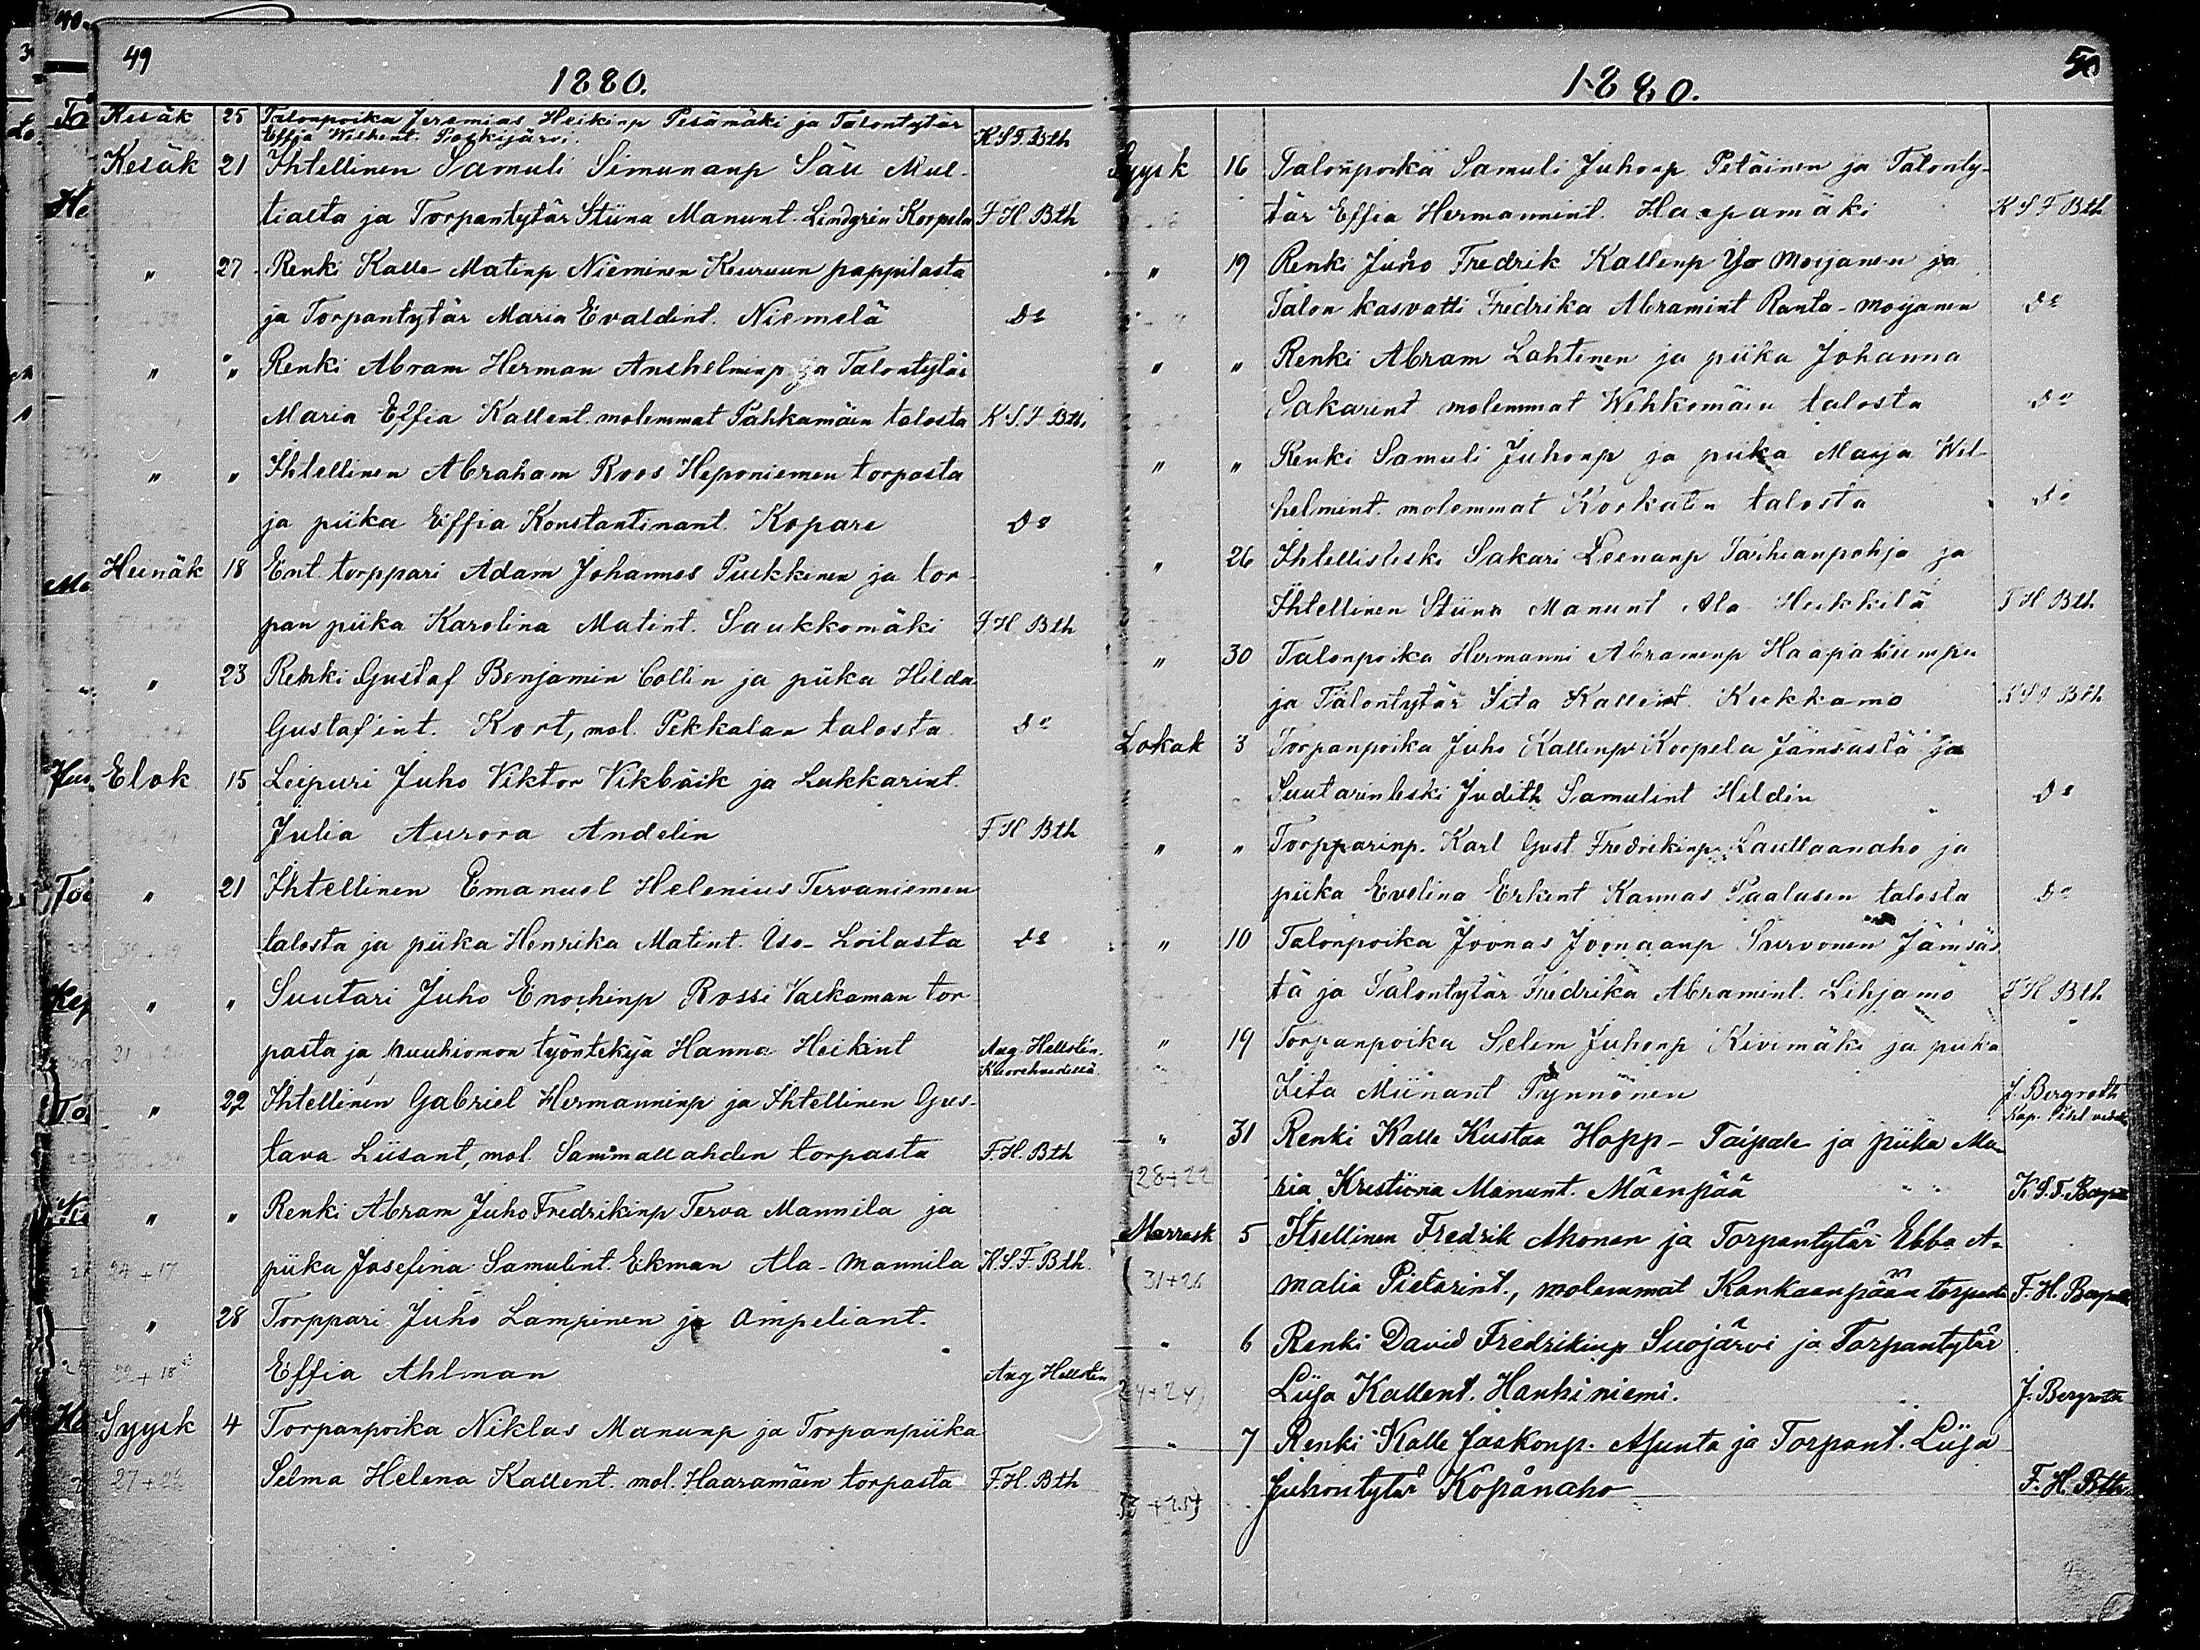 49
1880.
Kesäk 25 Talonpoika Jeremias Heikinp Pesämäki ja Talontytär
Effia Wilhent. Poskijärvi. K S F. Bth
Kesäk 21 Ihtellinen Samuli Simunanp Säu Mul-
tialta ja Torpantytär Stiina Manunt. Lindgrén Korpela F. H. Bth
" 27 Renki Kalle Matinp Nieminen Keuruun pappilasta
ja Torpantytär Maria Evaldint. Niemelä Do
" " Renki Abram Herman Anshelminp ja Talontytär
Maria Effia Kallent. molemmat Pähkämäen talosta K. S. F Bth.
" " Ihtellinen Abraham Roos Heponiemen torpasta
ja piika Eiffia Konstantinant. Kopare Do
Heinäk 18 Ent. torppari Adam Johannes Pukkinen ja tor-
pan piika Karolina Matint. Saukkomäki F H. Bth
" 23 Renki Gustaf Benjamin Collin ja piika Hilda
Gustaf'int. Kort, mol. Pekkalan talosta Do
Elok 15 Leipuri Juho Viktor Vikbäik ja Lukkarint.
Julia Aurora Andelin F. H Bth
" 21 Ihtellinen Emanuel Helenius Tervaniemen
talosta ja piika Henrika Matint. Iso-Loilasta Do
" " Suutari Juho Enochinp Rossi Valkaman tor
pasta ja työntekijä Hanna Heikint Aug. Hellstén.
Kuorehvedellä
" 22 Ihtellinen Gabriel Hermanninp ja Ihtellinen Gus-
tava Liisant, mol. Sammallahden torpasta F. H. Bth
" " Renki Abram Juho Fredrikinp Terva Mannila ja
24+17 piika Josefina Samulint. Ekman Ala-Mannila K. S. F. Bth.
" 28 Torppari Juho Lampinen ja Ompeliant.
Effia Ahlman Aug Hellstén
Syysk 4 Torpanpoika Niklas Manunp ja Torpanpiika
27+22 Selma Helena Kallent. mol. Haaramäen torpasta F. H. Bth
50
1880.
Syysk 16 Talonpoika Samuli Juhonp Petäinen ja Talonty-
tär Effia Hermannint. Haapamäki K S F Bth
" 19 Renki Juho Fredrik Kallenp Yo Moijanen ja
Talon kasvatti Fredrika Abramint Ranta-moijanen Do
" " Renki Abram Lahtinen ja piika Johanna
Sakarint molemmat Wehkomäen talosta Do
" " Renki Samuli Juhonp ja piika Marja Wil-
helmint. molemmat talosta Do
" 26 Ihtellisleski Sakari Leenanp Tarhianpohja ja
Ihtellinen Stiina Manunt Ala Heikkilä F H Bth
" 30 Talonpoika Hermanni Abramenp
ja Talontytär Iita Kallent. Kukkamo K S F Bth
Lokak 3 Torpanpoika Juho Kallenp Korpela Jämsästä ja
Suutarinleski Judith Samulint Heldén Do
" " Torpparinp. Karl Gust. Fredrikinp. Laullaanaho ja
piika Evelina Erkint Kannas Paalasen talosta Do
" 10 Talonpoika Joonas Joonaanp Survonen Jämsäs
tä ja Talontytär Fredrika Abramint. Lihjamo F H Bth
" 19 Torpanpoika Selim Juhonp Kivimäki ja piika
Iita Miinant Pynnönen J. Bergroth
Kap.
" 31 Renki Kalle Kustaa Hopp-Taipale ja piika Ma-
(28+22 ria Kristiina Manunt. Mäenpää K. S. F.
Marrask 5 Itsellinen Fredrik Ahonen ja Torpantytär Ebba A-
(31+26 malia Pietarint., molemmat Kankaanpään torpasta F. H.
" 6 Renki David Fredrikinp Suojärvi ja Torpantytär
Liisa Kallent. Hauhiniemi. J. Bergroth
" 7 Renki Kalle Jaakonp. Asunta ja Torpant. Liisa
Juhontytär Kopånaho F. H. Bth